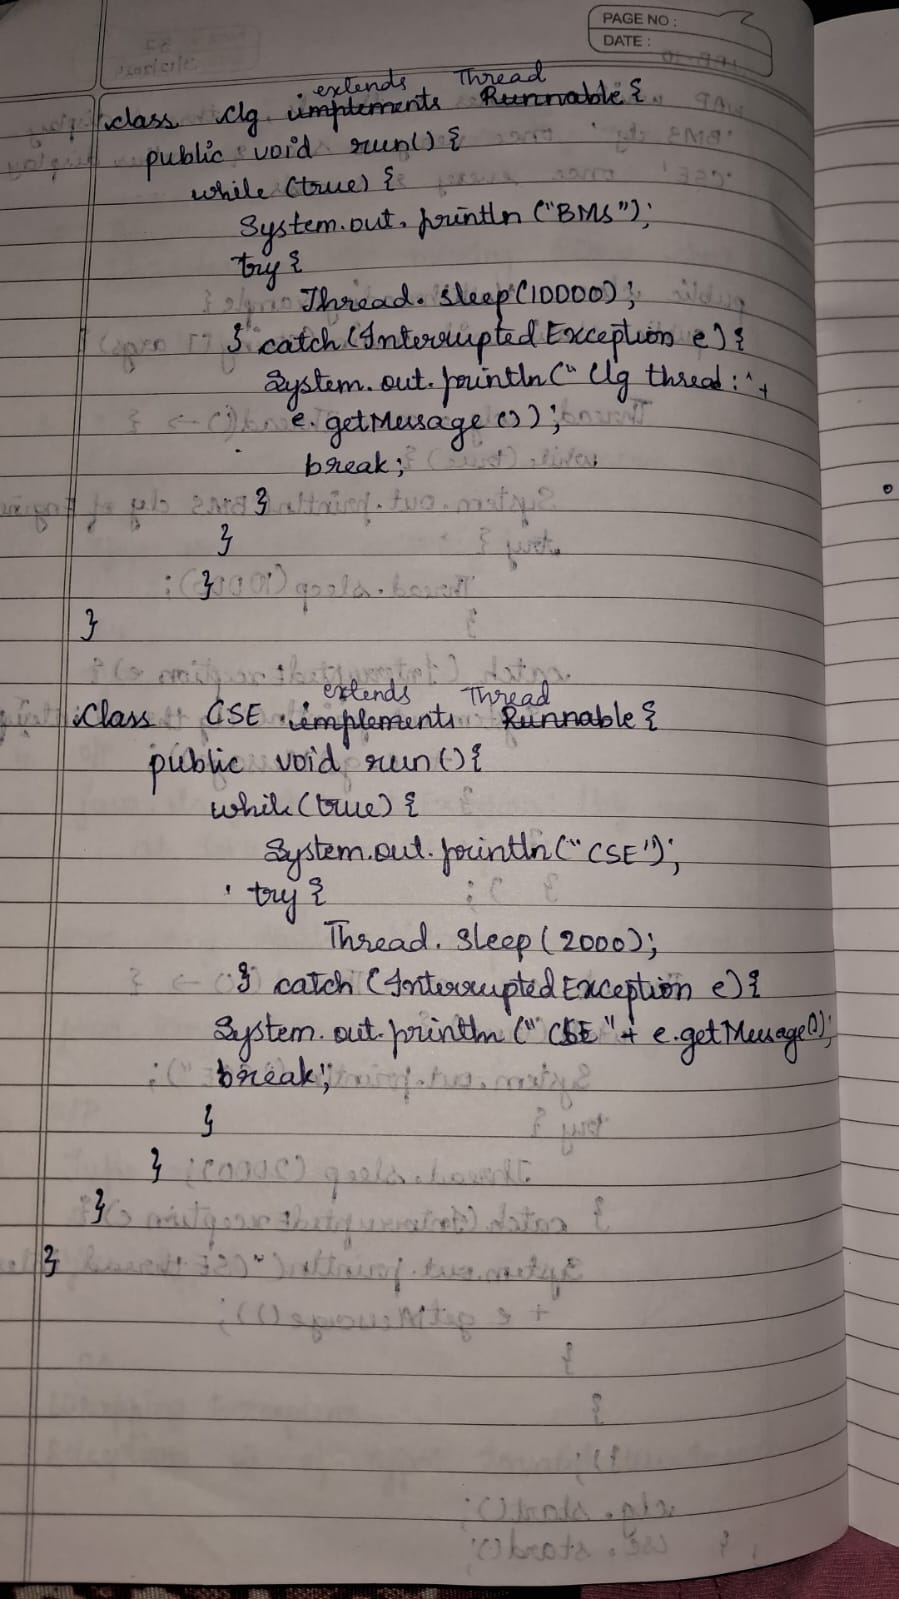 PAGE NO :
DATE :
extends Thread
class Clg implements Runnable {
public void run() {
while (true) {
System.out.println ("BMS");
try {
Thread. sleep(10000);
} catch (Interrupted Exception e) {
System.out.println(" Clg thread :" +
e. getMessage ());
break;
}
}
}
}
extends Thread
class CSE implements Runnable {
public void run() {
while(true) {
System.out.println(" CSE");
try {
Thread. sleep (2000);
} catch (Interrupted Exception e) {
System.out.println (" CSE "+ e.getMessage());
break;
}
}
}
}